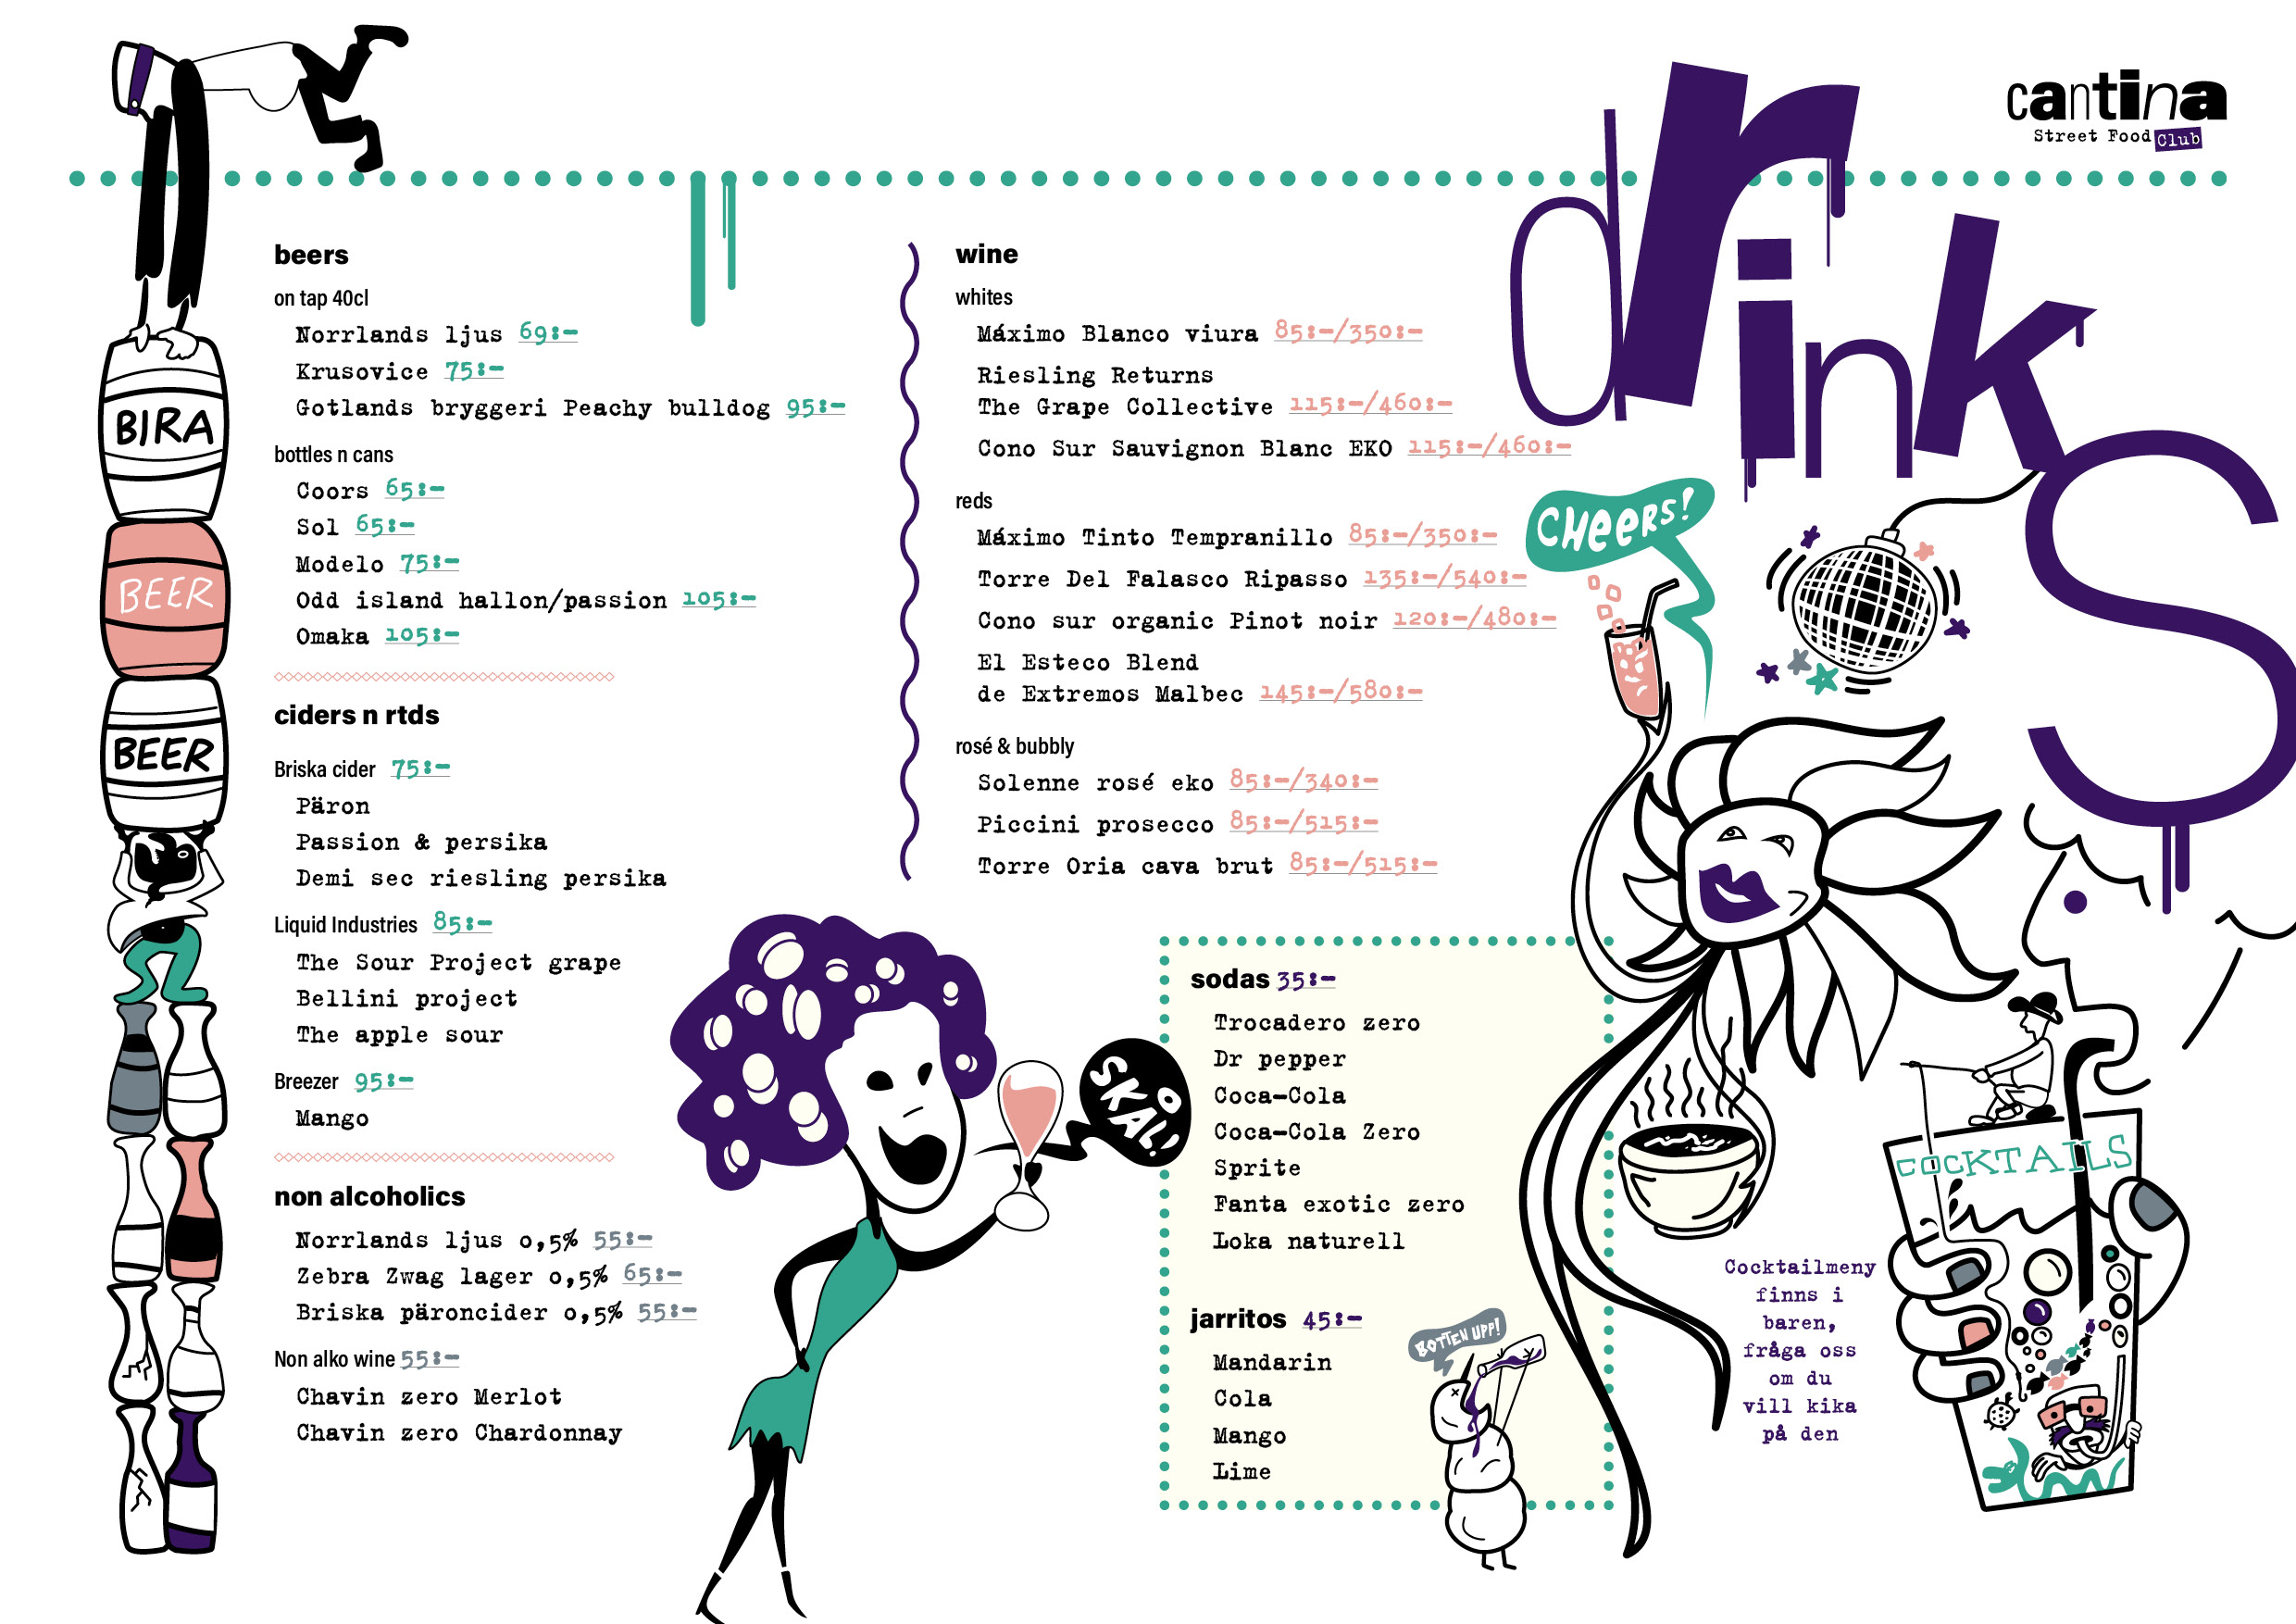 cantina
Street Food Club
drinks
BIRA
BEER
BEER
beers
on tap 40cl
Norrlands ljus 69:-
Krusovice 75:-
Gotlands bryggeri Peachy bulldog 95:-
bottles n cans
Coors 65:-
Sol 65:-
Modelo 75:-
Odd island hallon/passion 105:-
Omaka 105:-
ciders n rtds
Briska cider 75:-
Päron
Passion & persika
Demi sec riesling persika
Liquid Industries 85:-
The Sour Project grape
Bellini project
The apple sour
Breezer 95:-
Mango
non alcoholics
Norrlands ljus 0,5% 55:-
Zebra Zwag lager 0,5% 65:-
Briska päroncider 0,5% 55:-
Non alko wine 55:-
Chavin zero Merlot
Chavin zero Chardonnay
wine
whites
Máximo Blanco viura 85:-/350:-
Riesling Returns
The Grape Collective 115:-/460:-
Cono Sur Sauvignon Blanc EKO 115:-/460:-
reds
Máximo Tinto Tempranillo 85:-/350:-
Torre Del Falasco Ripasso 135:-/540:-
Cono sur organic Pinot noir 120:-/480:-
El Esteco Blend
de Extremos Malbec 145:-/580:-
rosé & bubbly
Solenne rosé eko 85:-/340:-
Piccini prosecco 85:-/515:-
Torre Oria cava brut 85:-/515:-
CHEERS!
SKÅL!
sodas 35:-
Trocadero zero
Dr pepper
Coca-Cola
Coca-Cola Zero
Sprite
Fanta exotic zero
Loka naturell
jarritos 45:-
Mandarin
Cola
Mango
Lime
BOTTEN UPP!
Cocktailmeny
finns i
baren,
fråga oss
om du
vill kika
på den
COCKTAILS